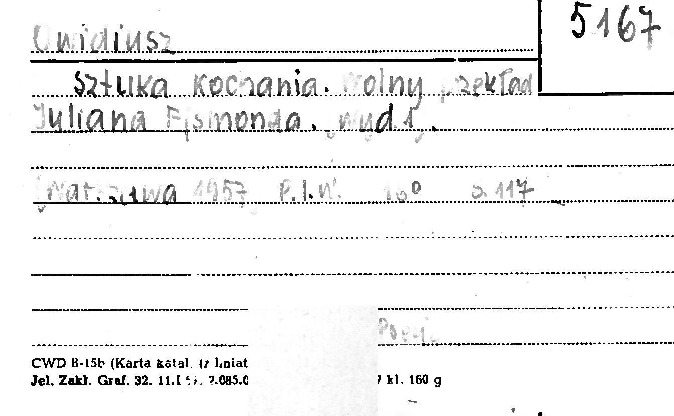 5167
Owidiusz
Sztuka kochania. Wolny przekład
Juliana Ejsmonda. Wyd 1.
Warszawa 1957 P.I.W. 16° s. 117
CWD B-15b (Karta katal.
Jel. Zakł. Graf. 32. kl. 160 g